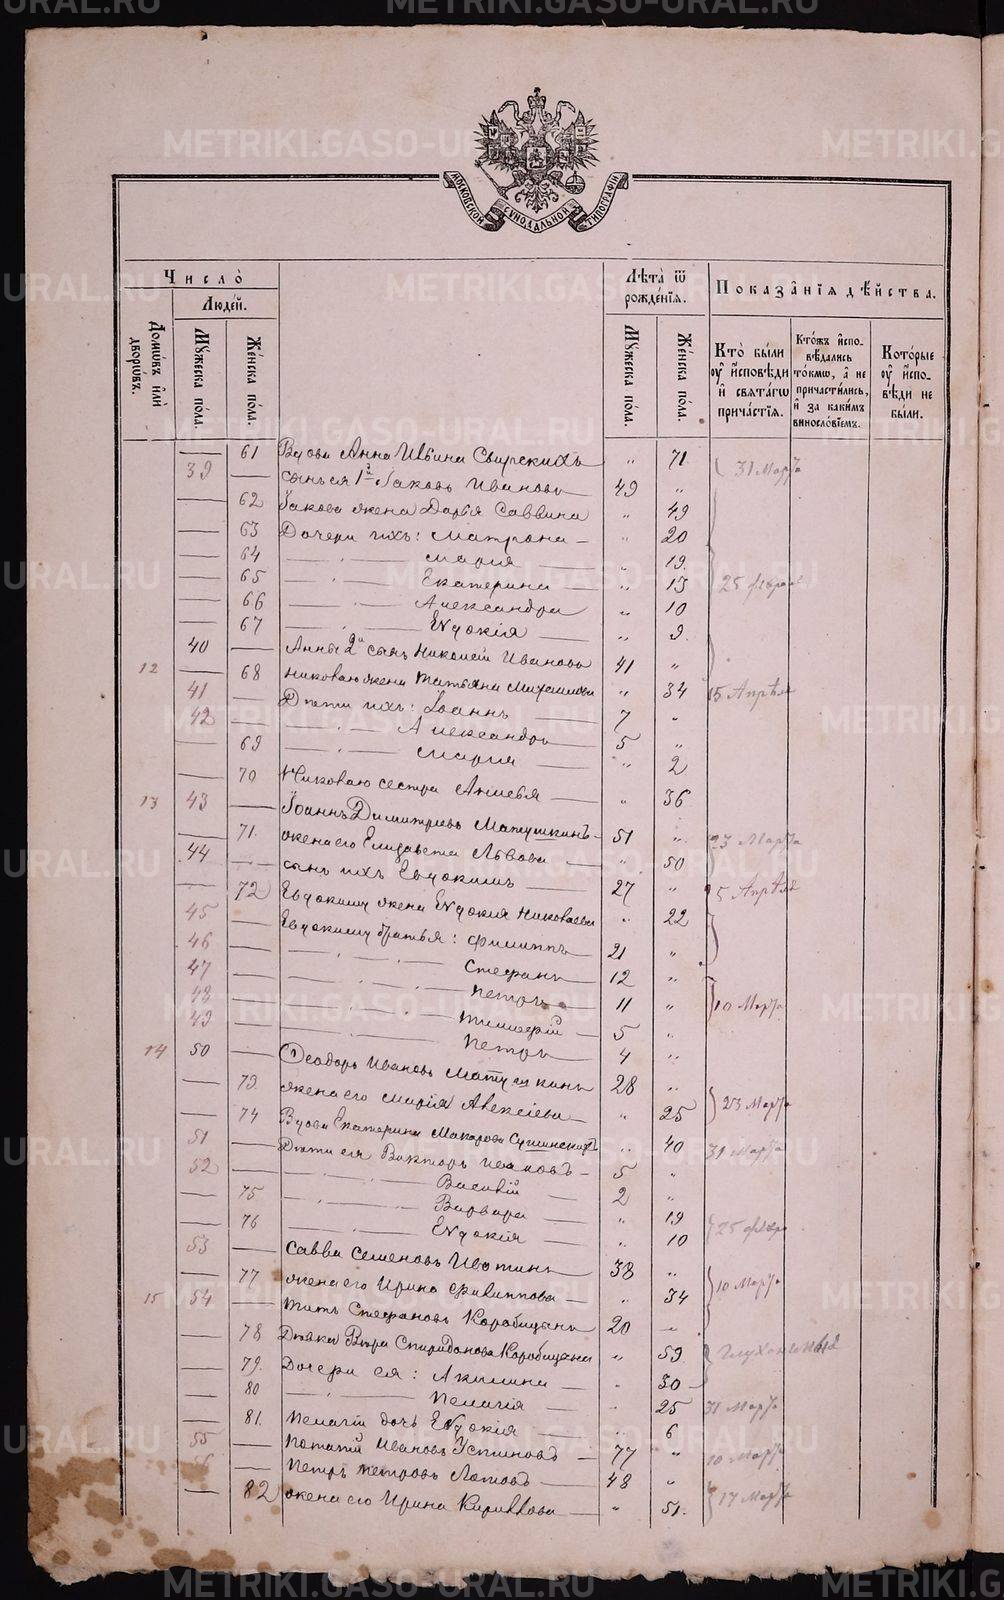 МОСКОВСКОЙ СѴНОДАЛЬНОЙ ТИПОГРАФІИ
Число̀
Людей.
Домѡвъ и҆лѝ дворѡвъ.
Мꙋ́жеска по́ла.
Же́нска по́ла.
Лѣ́та ѿ рожде́нїѧ.
Мꙋ́жеска по́ла.
Же́нска по́ла.
Показа̂нїѧ дѣ́йства.
Кто̀ бы́ли ᲂу҆ и҆́сповѣди и҆ свѧта́гѡ прича́стїѧ.
Кто́жъ и҆спо-вѣ́дались то́кмѡ, а҆ не причасти́лись, и҆ за каки́мъ виносло́вїемъ.
Кото́рые ᲂу҆ и҆спо-вѣди не бы́ли.
61 Вдова Анна Ильина Свирскихъ " 71 31 Марта
39 сынъ ея 1й Іаковъ Ивановъ 49 "
62 Іакова жена Дарья Саввина " 49
63 Дочери ихъ: Матрона " 20
64 Марія " 19
65 Екатерина " 13 25 февр
66 Александра " 10
67 Евдокія " 9
40 Анны 2й сынъ Николай Ивановъ 41 "
12 68 Николаю жена Татьяна Михаилова " 34 15 Апрѣля
41 Дѣти ихъ: Іоаннъ 7 "
42 Александръ 5 "
69 Марія " 2
70 Николаю сестра 36
13 43 Іоаннъ Димитріевъ Матушкинъ 51 " 23 Марта
71. жена его Елизавета Львова " 50
44 сынъ ихъ Евдокимъ 27 " 5 Апрѣля
72 Евдокиму жена Евдокія Николаева " 22
45 Евдокиму братья: Филиппъ 21 "
46 Стефанъ 12 "
47 Петръ 11 " 10 Марта
48 Тимофей 5 "
49 Петръ 4 "
14 50 Ѳеодоръ Ивановъ Матушкинъ 28 "
73. жена его Марія Алексіева " 25 23 Марта
74 Вдова Екатерина Макарова Сушинскихъ " 40 31 Марта
51 Дѣти ея Викторъ Ивановъ 5 "
52 Василій 2 "
75 Варвара " 19
76 Евдокія " 10 25 февр
53 Савва Семеновъ Ивотинъ 38 "
77 жена его Ирина Филиппова " 34 10 Марта
15 54 Титъ Стефановъ Коробицынъ 20 "
78 Дѣвка Вѣра Спиридонова Коробицына " 59
79. Дочери ея: Акилина " 30
80 Пелагія " 25 31 Марта
81. Пелагіи дочь Евдокія 6
55 Потапій Ивановъ Устиновъ 77 " 10 Марта
56 Петръ Петровъ Лотовъ 48 "
82 жена его Ирина Кириллова " 51. 17 Марта